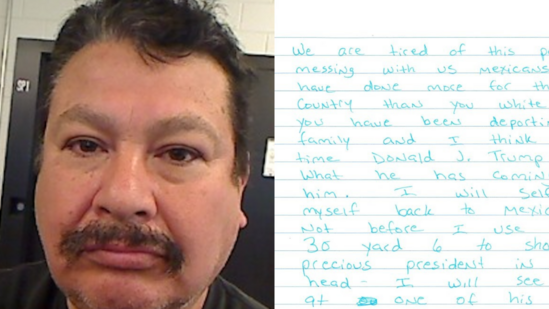 SPI
We are tired of this p
messing with us mexicans
have done more for th
Country than you white
you have been deporti
family and I think
time Donald J. Trump
what he has comin
him. I will self
myself back to mexic
Not before I use
30 yard 6 to sho
precious president in
head - I will see
at one of his